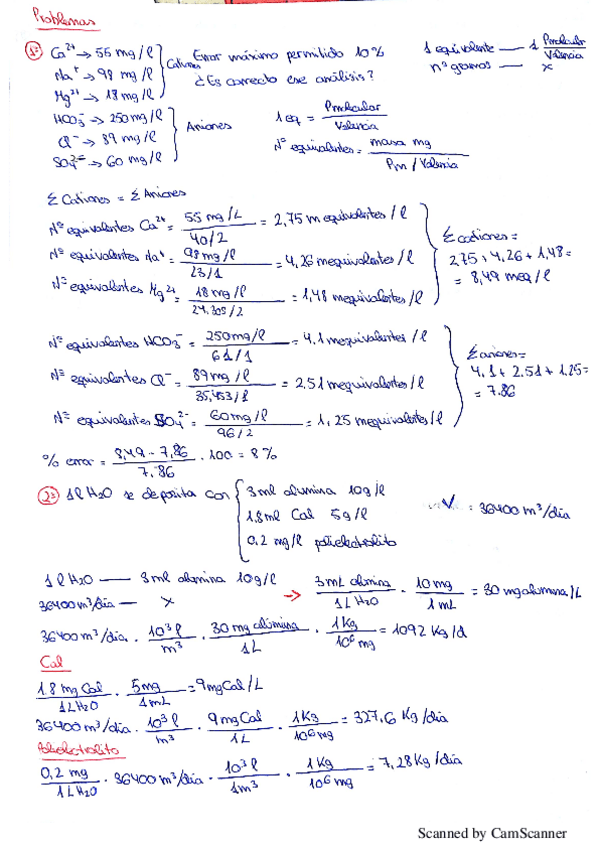 Problemas
1º Ca²⁺ → 55 mg/l
Na⁺ → 98 mg/l
Mg²⁺ → 18 mg/l
Cationes
Error máximo permitido 10%
¿Es correcto ese análisis?
1 equivalente — 1 Pmolecular/Valencia
nº gramos — x
HCO₃⁻ → 250 mg/l
Cl⁻ → 89 mg/l
SO₄²⁻ → 60 mg/l
Aniones
1 eq = Pmolecular/Valencia
Nº equivalentes = masa mg / Pm/Valencia
Σ Cationes = Σ Aniones
Nº equivalentes Ca²⁺ = 55 mg/L / 40/2 = 2,75 m equivalentes/l
Nº equivalentes Na⁺ = 98 mg/l / 23/1 = 4,26 mequivalentes/l
Nº equivalentes Mg²⁺ = 18 mg/l / 24,305/2 = 1,48 mequivalentes/l
Σ cationes =
2,75 + 4,26 + 1,48 =
= 8,49 meq/l
Nº equivalentes HCO₃⁻ = 250 mg/l / 61/1 = 4,1 mequivalentes/l
Nº equivalentes Cl⁻ = 89 mg/l / 35,453/1 = 2,51 mequivalentes/l
Nº equivalentes SO₄²⁻ = 60 mg/l / 96/2 = 1,25 mequivalentes/l
Σ aniones =
4,1 + 2,51 + 1,25 =
= 7,86
% error = 8,49 - 7,86 / 7,86 · 100 = 8%
2º 1 l H₂O se deposita con
3 ml alumina 10 g/l
1,8 ml Cal 5 g/l
0,2 mg/l polielectrolito
= 36400 m³/dia
1 l H₂O — 3 ml alumina 10 g/l
36400 m³/dia — x
→ 3 mL alumina / 1 L H₂O · 10 mg / 1 mL = 30 mg alumina/L
36400 m³/dia · 10³ l / m³ · 30 mg alumina / 1L · 1 Kg / 10⁶ mg = 1092 Kg/d
Cal
1.8 mg Cal / 1 L H₂O · 5 mg / 1 mL = 9 mg Cal/L
36400 m³/dia · 10³ l / m³ · 9 mg Cal / 1L · 1 Kg / 10⁶ mg = 327,6 Kg/dia
Polielectrolito
0,2 mg / 1 L H₂O · 36400 m³/dia · 10³ l / 1 m³ · 1 Kg / 10⁶ mg = 7,28 Kg/dia
Scanned by CamScanner